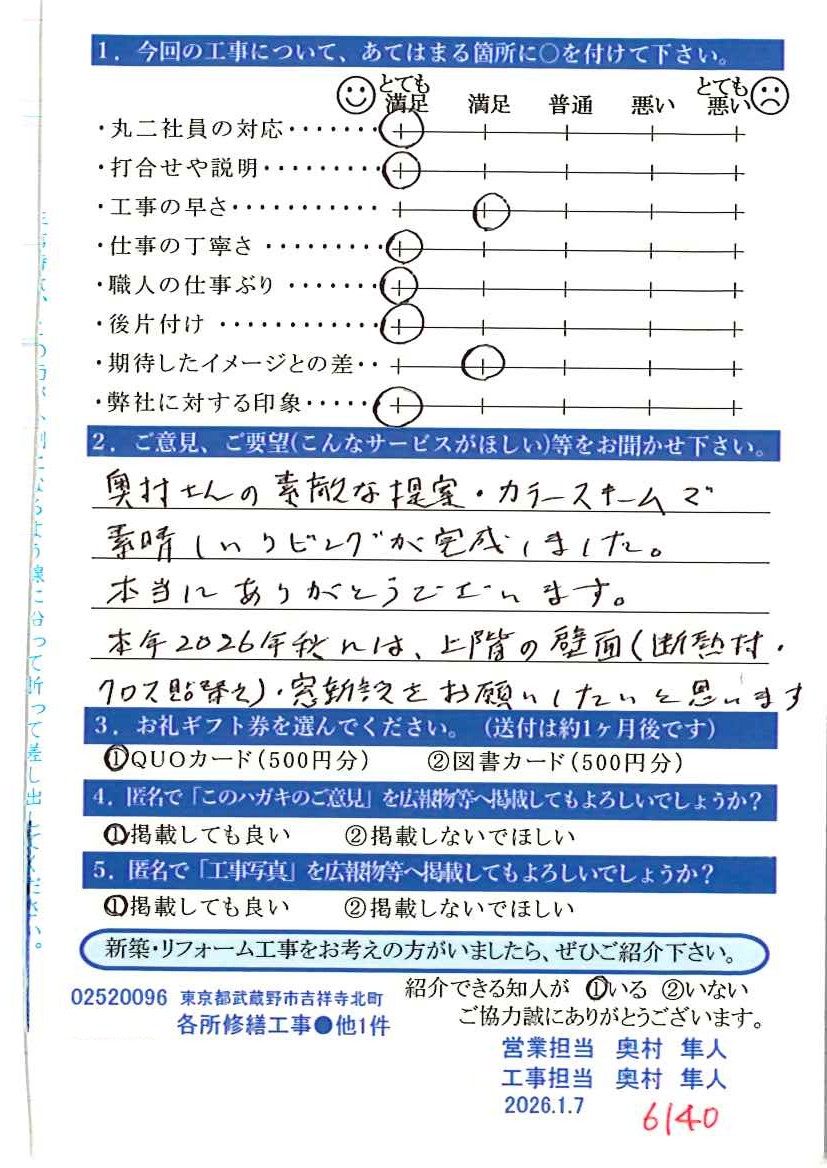 1．今回の工事について、あてはまる箇所に○を付けて下さい。
とても満足 満足 普通 悪い とても悪い
・丸二社員の対応・・・・・・・
・打合せや説明・・・・・・・・・
・工事の早さ・・・・・・・・・・・
・仕事の丁寧さ・・・・・・・・・
・職人の仕事ぶり・・・・・・・
・後片付け・・・・・・・・・・・・
・期待したイメージとの差・・
・弊社に対する印象・・・・・
2．ご意見、ご要望(こんなサービスがほしい)等をお聞かせ下さい。
奥村さんの素敵な提案・カラースキームで
素晴しいリビングが完成しました。
本当にありがとうございます。
本年2026年秋には、上階の壁面(断熱材・
クロス貼替え)・窓新設をお願いしたいと思います
3．お礼ギフト券を選んでください。（送付は約1ヶ月後です）
①QUOカード(500円分) ②図書カード(500円分)
4．匿名で「このハガキのご意見」を広報物等へ掲載してもよろしいでしょうか？
①掲載しても良い ②掲載しないでほしい
5．匿名で「工事写真」を広報物等へ掲載してもよろしいでしょうか？
①掲載しても良い ②掲載しないでほしい
新築・リフォーム工事をお考えの方がいましたら、ぜひご紹介下さい。
02520096 東京都武蔵野市吉祥寺北町
各所修繕工事●他1件
紹介できる知人が ①いる ②いない
ご協力誠にありがとうございます。
営業担当 奥村 隼人
工事担当 奥村 隼人
2026.1.7
6140